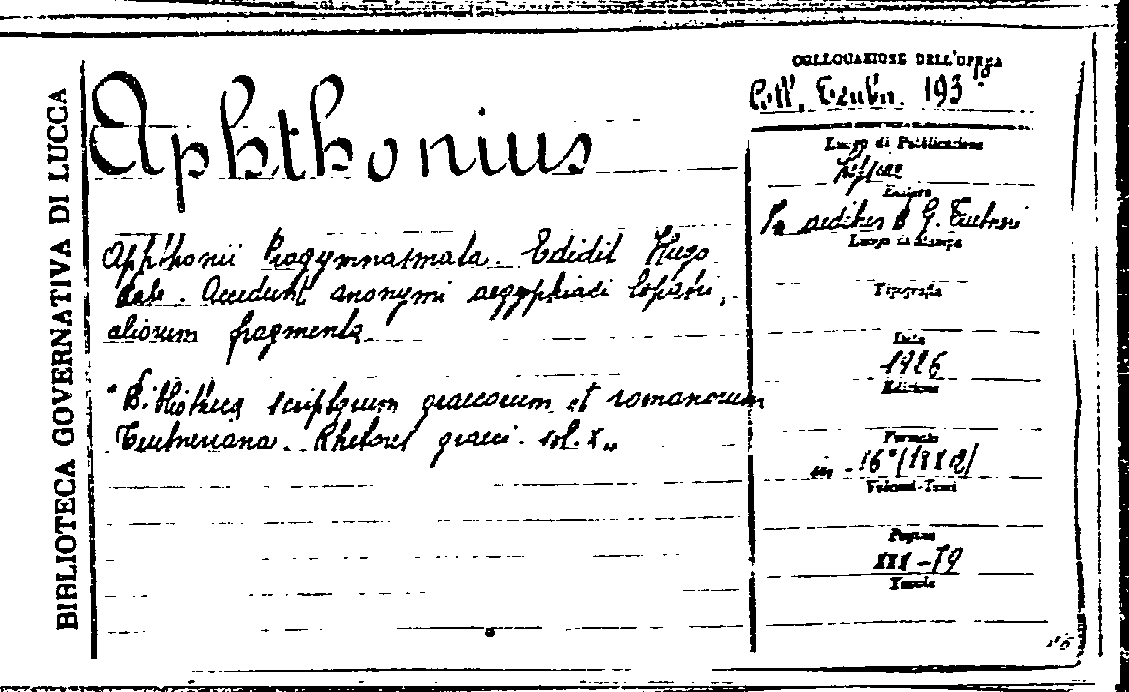 BIBLIOTECA GOVERNATIVA DI LUCCA
Aphthonius
Aphthonii Progymnasmata. Edidit Hugo
Rabe. Accedunt anonymi aegyptiaci sopatri,
aliorum fragmenta.
"Bibliotheca scriptorum graecorum et romanorum
Teubneriana. Rhetores graeci. vol. X„
COLLOCAZIONE DELL'OPERA
Coll. Teubn. 193
Luogo di Pubblicazione
Lipsiae
Editore
In aedibus B G. Teubneri
Luogo di Stampa
Tipografia
Data
1926
Edizione
Formato
in - 16°
Volumi-Tomi
Pagine
XXX-79
Tavole